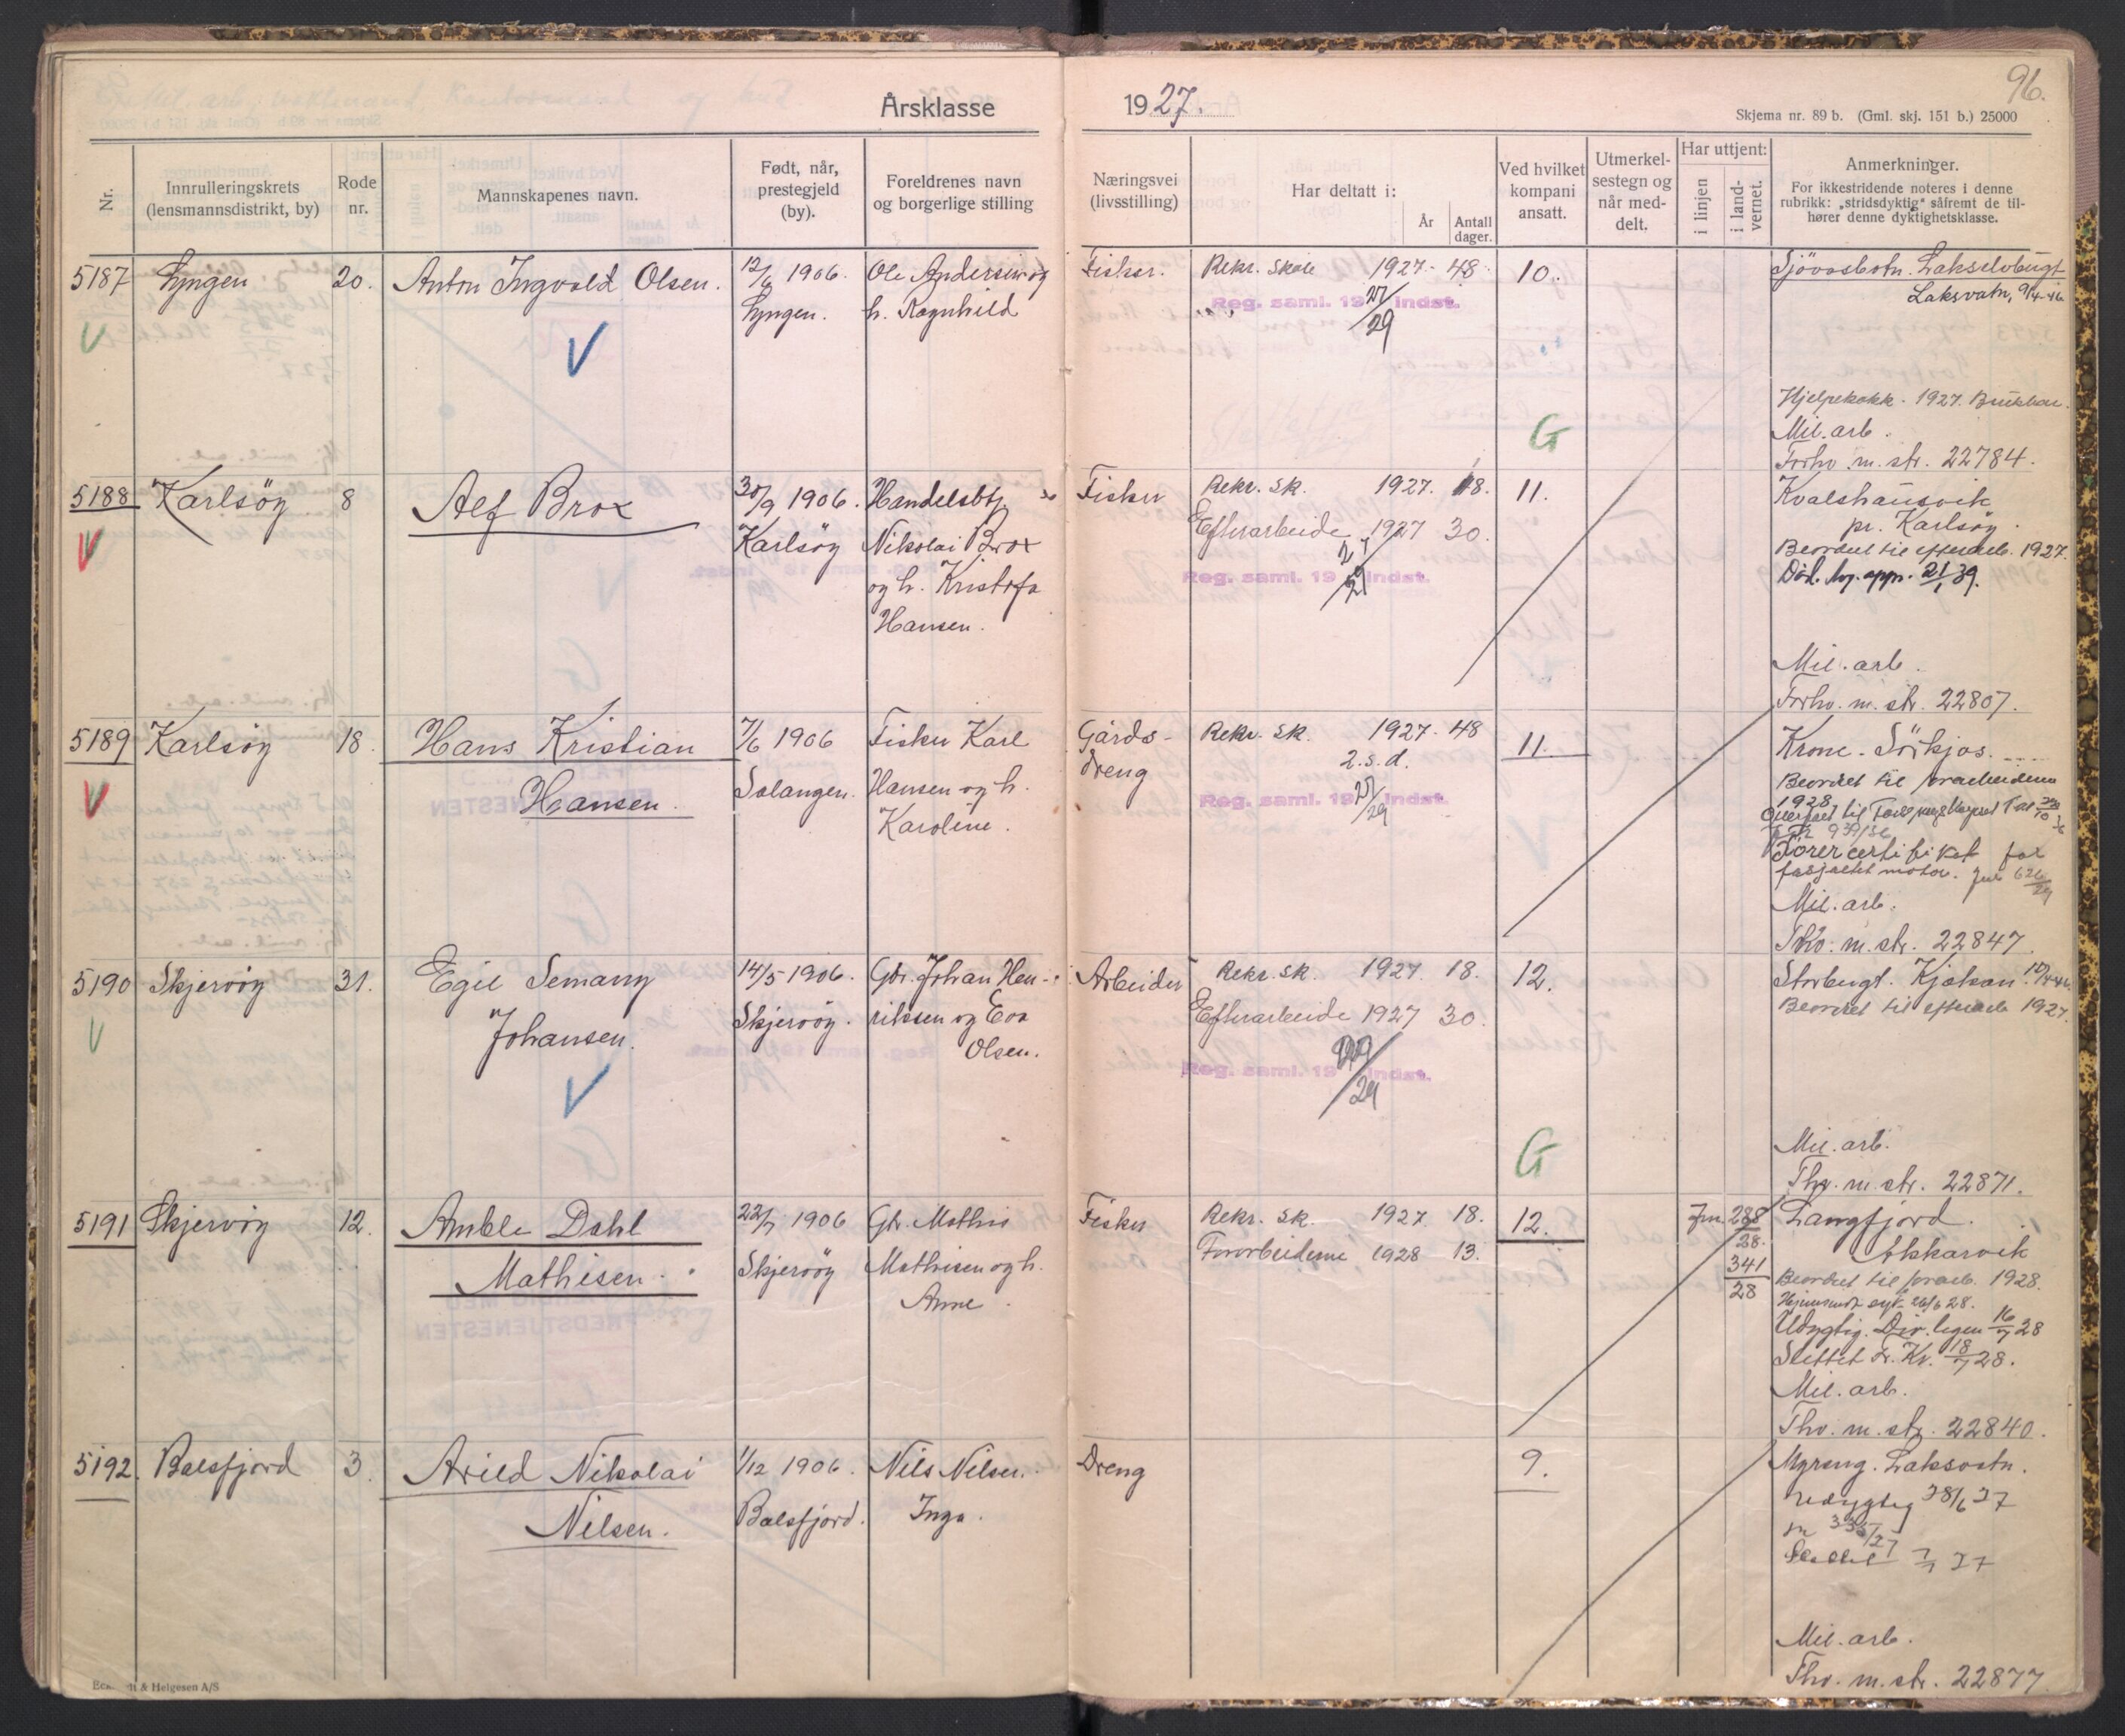 96.
Årsklasse 1927.
Skjema nr. 89 b. (Gml. skj. 151 b.) 25000
Nr.
Innrulleringskrets
(lensmannsdistrikt, by)
Rode
nr.
Mannskapenes navn.
Født, når,
prestegjeld
(by).
Foreldrenes navn
og borgerlige stilling
Næringsvei
(livsstilling)
Har deltatt i:
År
Antall
dager.
Ved hvilket
kompani
ansatt.
Utmerkel-
sestegn og
når med-
delt.
Har uttjent:
i linjen
i land-
vernet.
Anmerkninger.
For ikkestridende noteres i denne
rubrikk: „stridsdyktig" såfremt de til-
hører denne dyktighetsklasse.
5187 Lyngen 20. Anton Ingvald Olsen.
12/6 1906.
Lyngen.
Ole Andersen og
h. Ragnhild
Fisker.
Rekr. skole 1927. 48.
Reg. saml. 19 27/29 indst.
10.
G
Sjövasbotn. Lakselvbugt
Laksvatn, 9/4-46
Hjelpekokk. 1927.
Mil. arb.
Forhv. m. str. 22784.
5188 Karlsöy 8 Alf Brox
30/9 1906.
Karlsöy
Handelsbtj.
Nikolai Brox
og h. Kristofa
Hansen.
Fisker
Rekr. sk. 1927. 18.
Efterarbeide 1927 30.
Reg. saml. 19 27/29 indst.
11.
Kvalshausvik
pr. Karlsöy.
Beordret til efterarb. 1927.
Död. 21/1 39.
Mil. arb.
Forhv. m. str. 22807.
5189 Karlsöy 18. Hans Kristian
Hansen.
7/6 1906
Salangen.
Fisker Karl
Hansen og h.
Karoline.
Gårds-
dreng
Rekr. sk. 1927. 48
2. s. d.
Reg. saml. 19 27/29 indst.
11.
Krone - Sörkjos.
Beordret til forarbeiderne
1928.
Förercertifikat for
motor.
Mil. arb.
Thv. m. str. 22847.
5190 Skjervöy 31. Egil Semany
Johansen.
14/5 1906.
Skjervöy.
Gbr. Johan Hen-
riksen og Eva
Olsen.
Arbeider
Rekr. sk. 1927. 18.
Efterarbeide 1927 30.
Reg. saml. 19 /29 indst.
12.
G
Storbugt. Kjækan.
Beordret til efterarb 1927.
Mil. arb.
Thv. m. str. 22871.
5191 Skjervöy 12. Amble Dahl
Mathisen.
22/7 1906
Skjervöy
Gbr. Mathis
Mathisen og h.
Anne.
Fisker
Rekr. sk. 1927. 18.
Forarbeiderne 1928 13.
12.
Jnr. 288/28.
341/28
Langfjord.
Akkarvik
Beordret til forarb. 1928.
Hjemsendt syk 26/6 28.
Udygtig. Div. legen 16/7 28
Slettet 18/7 28.
Mil. arb.
Thv. m. str. 22840.
5192. Balsfjord 3. Arild Nikolai
Nilsen.
1/12 1906.
Balsfjord.
Nils Nilsen.
Inga.
Dreng
9.
Myreng. Laksvatn.
Udygtig 28/6 27
jn 335/27
Slettet 27
Mil. arb.
Thv. m. str. 22877.
& Helgesen A/S